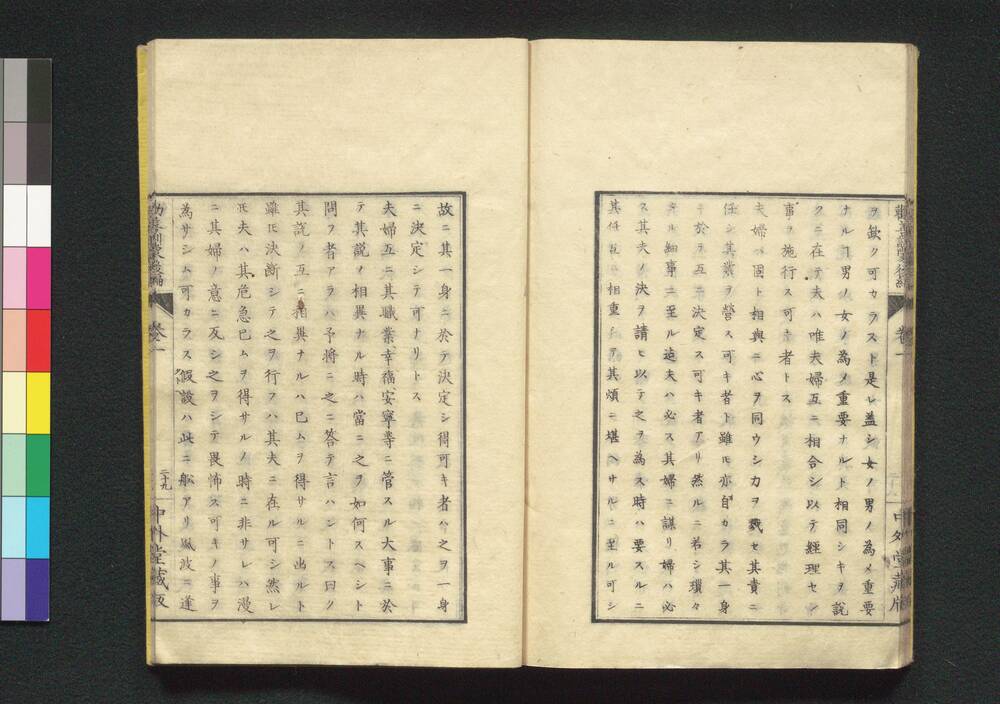 ヲ欽ク可カラスト是レ盖シ女ノ男ノ為メ重要
ナルヿ男ノ女ノ為メ重要ナルト相同シキヲ説
クニ在テ夫ハ唯夫婦互ニ相合シ以テ經理セシ
事ヲ施行ス可キ者トス
夫婦ハ固ト相與ニ心ヲ同ウシカヲ戮セ其責ニ
任シ其業ヲ營ス可キ者ト雖モ亦自カラ其一身
キ於テ互ニ決定ス可キ者アリ然ルニ若シ瓆々
タル細事ニ至ル迠夫ハ必ス其婦ニ謀リ婦ハ必
ス其夫ノ決ヲ請ヒ以テ之ヲ為ス時ハ要スルニ
其任互ニ相重リテ其煩ニ堪ヘサルニ至ル可シ
卷一
中外堂藏版
故ニ其一身ニ於テ決定シ得可キ者ハ之ヲ一身
ニ決定シテ可ナリトス
夫婦互ニ其職業幸福安寧等ニ管スル大事ニ於
テ其説ノ相異ナル時ハ當ニ之ヲ如何スヘシト
問フ者アラハ予將ニ之ニ答テ言ハントス曰ク
其説ノ互ニ相異ナルハ已ムヲ得サルニ出ルト
雖モ決断シテ之ヲ行フハ其夫ニ在ル可シ然レ
モ夫ハ其危急已ムヲ得サルノ時ニ非サレハ漫
ニ其婦ノ意ニ反シ之ヲシテ畏怖ス可キノ事ヲ
為サシム可カラス假設ハ此ニ船アリ風波ニ逢
卷一
二十九
中外堂藏版